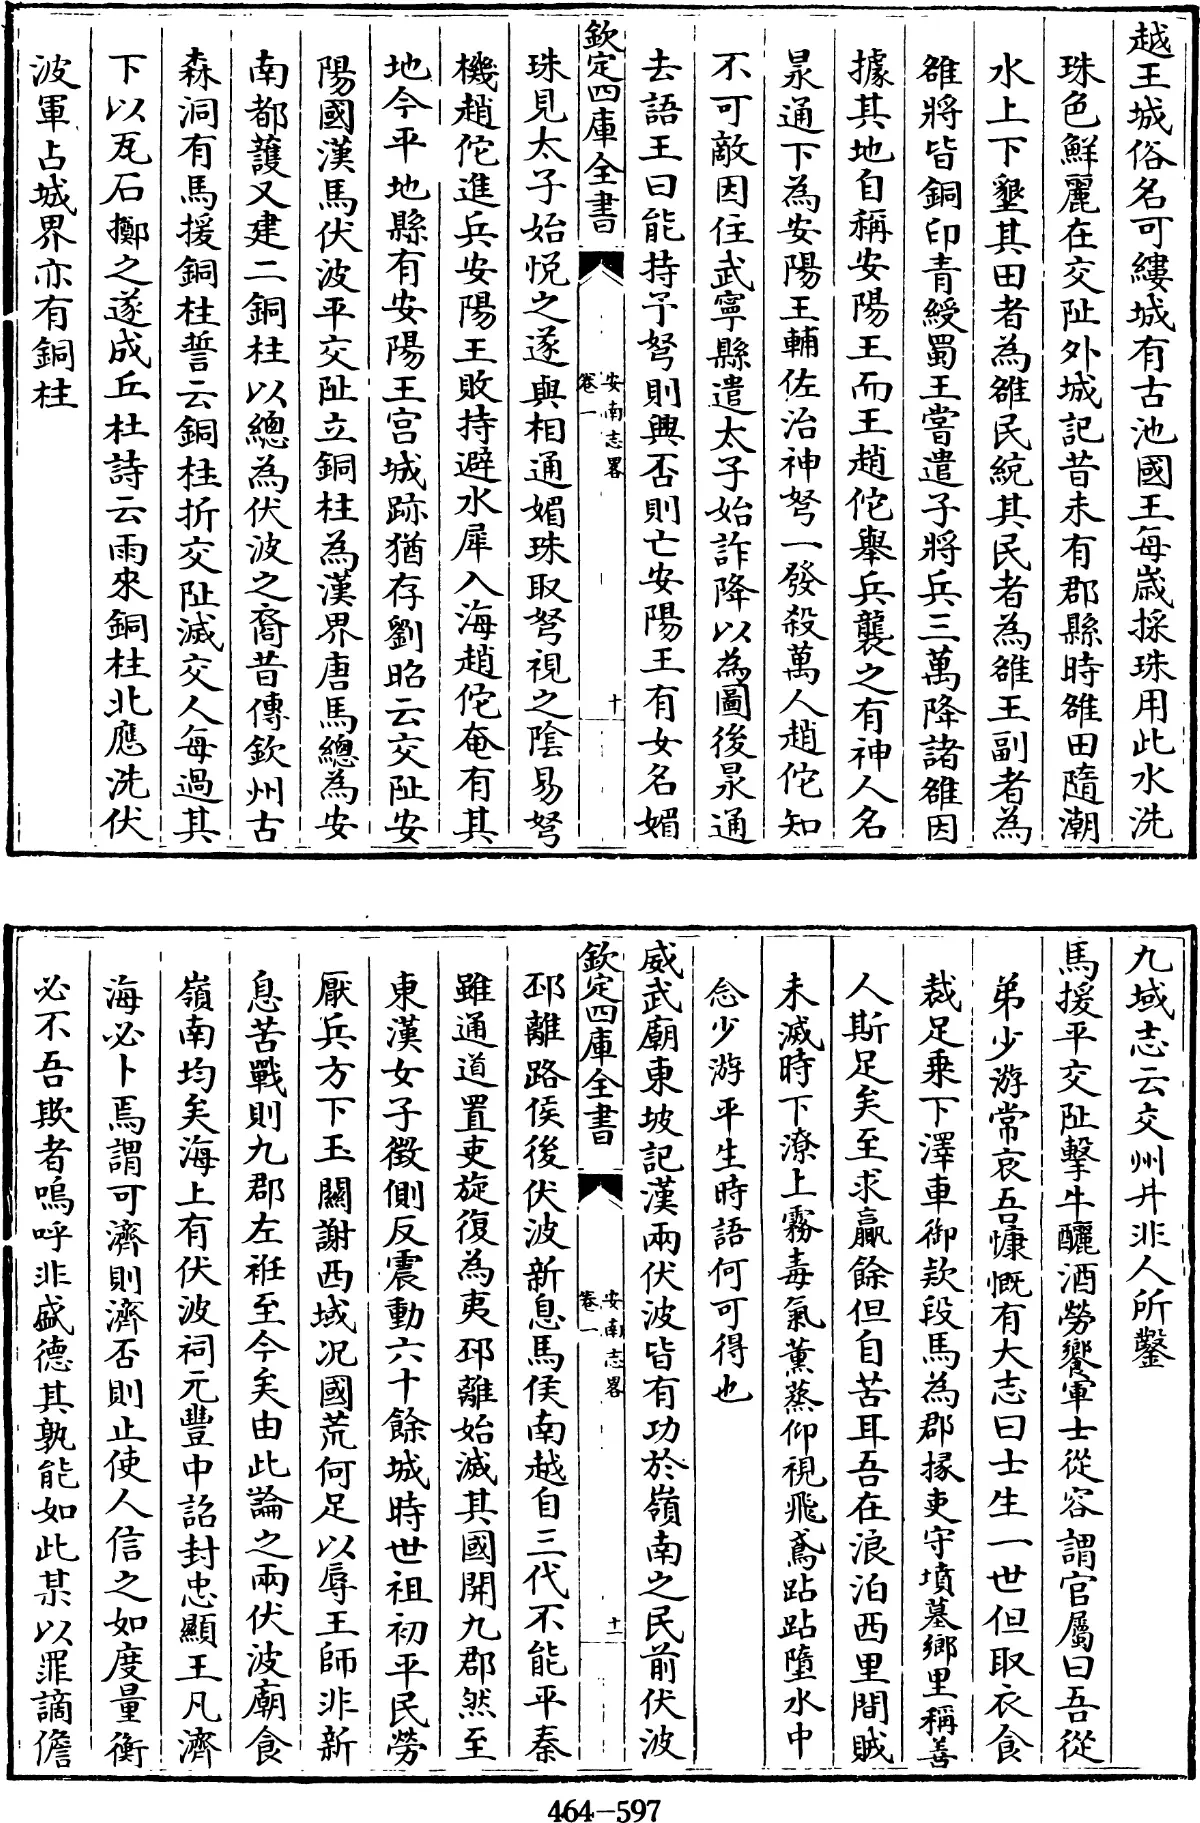 越王城俗名可縷城有古池國王每嵗採珠用此水洗
珠色鮮麗在交阯外城記昔未有郡縣時雒田隨潮
水上下墾其田者為雒民統其民者為雒王副者為
雒將皆銅印青綬蜀王嘗遣子將兵三萬降諸雒因
據其地自稱安陽王而王趙佗舉兵襲之有神人名
泉通下為安陽王輔佐治神弩一發殺萬人趙佗知
不可敵因住武寧縣遣太子始詐降以為圖後泉通
去語王曰能持予弩則興否則亡安陽王有女名媚
欽定四庫全書
安南志畧
卷一
十
珠見太子始悦之遂與相通媚珠取弩視之陰易弩
機趙佗進兵安陽王敗持避水犀入海趙佗奄有其
地今平地縣有安陽王宫城跡猶存劉昭云交阯安
陽國漢馬伏波平交阯立銅柱為漢界唐馬總為安
南都護又建二銅柱以總為伏波之裔昔傳欽州古
森洞有馬援銅柱誓云銅柱折交阯滅交人每過其
下以瓦石擲之遂成丘杜詩云雨來銅柱北應洗伏
波軍占城界亦有銅柱
九域志云交州井非人所鑿
馬援平交阯擊牛釃酒勞饗軍士從容謂官屬曰吾從
弟少游常哀吾慷慨有大志曰士生一世但取衣食
裁足乗下澤車御款段馬為郡掾吏守墳墓鄉里稱善
人斯足矣至求贏餘但自苦耳吾在浪泊西里間賊
未滅時下潦上霧毒氣薫蒸仰視飛鳶跕跕墮水中
念少游平生時語何可得也
威武廟東坡記漢兩伏波皆有功於嶺南之民前伏波
欽定四庫全書
安南志畧
卷一
十一
邳離路侯後伏波新息馬侯南越自三代不能平秦
雖通道置吏旋復為夷邳離始滅其國開九郡然至
東漢女子徵側反震動六十餘城時世祖初平民勞
厭兵方下玉關謝西域况國荒何足以辱王師非新
息苦戰則九郡左袵至今矣由此論之兩伏波廟食
嶺南均矣海上有伏波祠元豐中詔封忠顯王凡濟
海必卜焉謂可濟則濟否則止使人信之如度量衡
必不吾欺者嗚呼非盛德其孰能如此某以罪謫儋
464-597